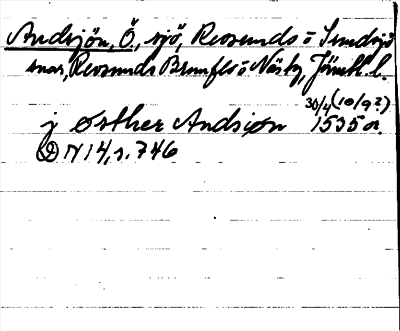 Andsjön, Ö, sjö, Revsunds o Sundsjö
snar, Revsunds Brunflo o Näsky, Jämtl l.
30/4 (10/9?)
j østher Andsiøn 1535 or.
N 14, s. 746